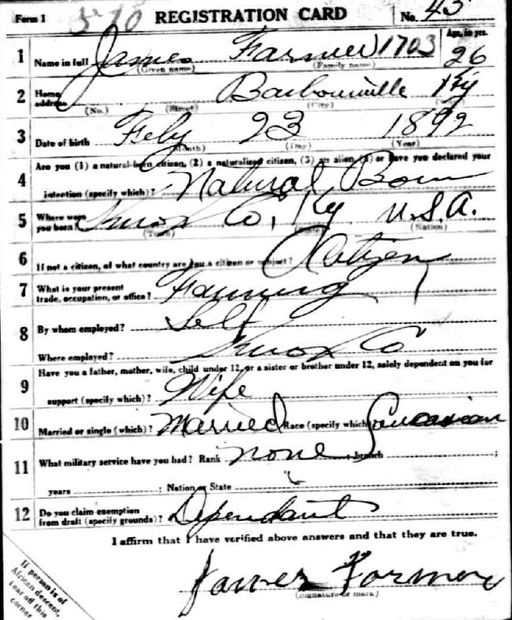 Form 1 REGISTRATION CARD No. 45
1 Name in full James Farmer 1703 Age, in yrs. 26
(Given name) (Family name)
2 Home address Barbourville Ky
(No.) (Street) (City)
3 Date of birth Feby 23 1892
(Month) (Day) (Year)
Are you (1) a natural-born citizen, (2) a naturalized citizen, (3) an alien, (4) or have you declared your
4 intention (specify which)? Natural Born
5 Where were you born? Knox Co, Ky U.S.A.
(Town) (Nation)
6 If not a citizen, of what country are you a citizen or subject? A Citizen
7 What is your present trade, occupation, or office? Farming
8 By whom employed? Self
Where employed? Knox Co
Have you a father, mother, wife, child under 12, or a sister or brother under 12, solely dependent on you for
9 support (specify which)? Wife
10 Married or single (which)? Married Race (specify which)? Caucasian
11 What military service have you had? Rank none ; branch ;
years ; Nation or State
12 Do you claim exemption from draft (specify grounds)? Dependant
I affirm that I have verified above answers and that they are true.
James Farmer
(Signature or mark)
If person is of
African descent,
tear off this
corner